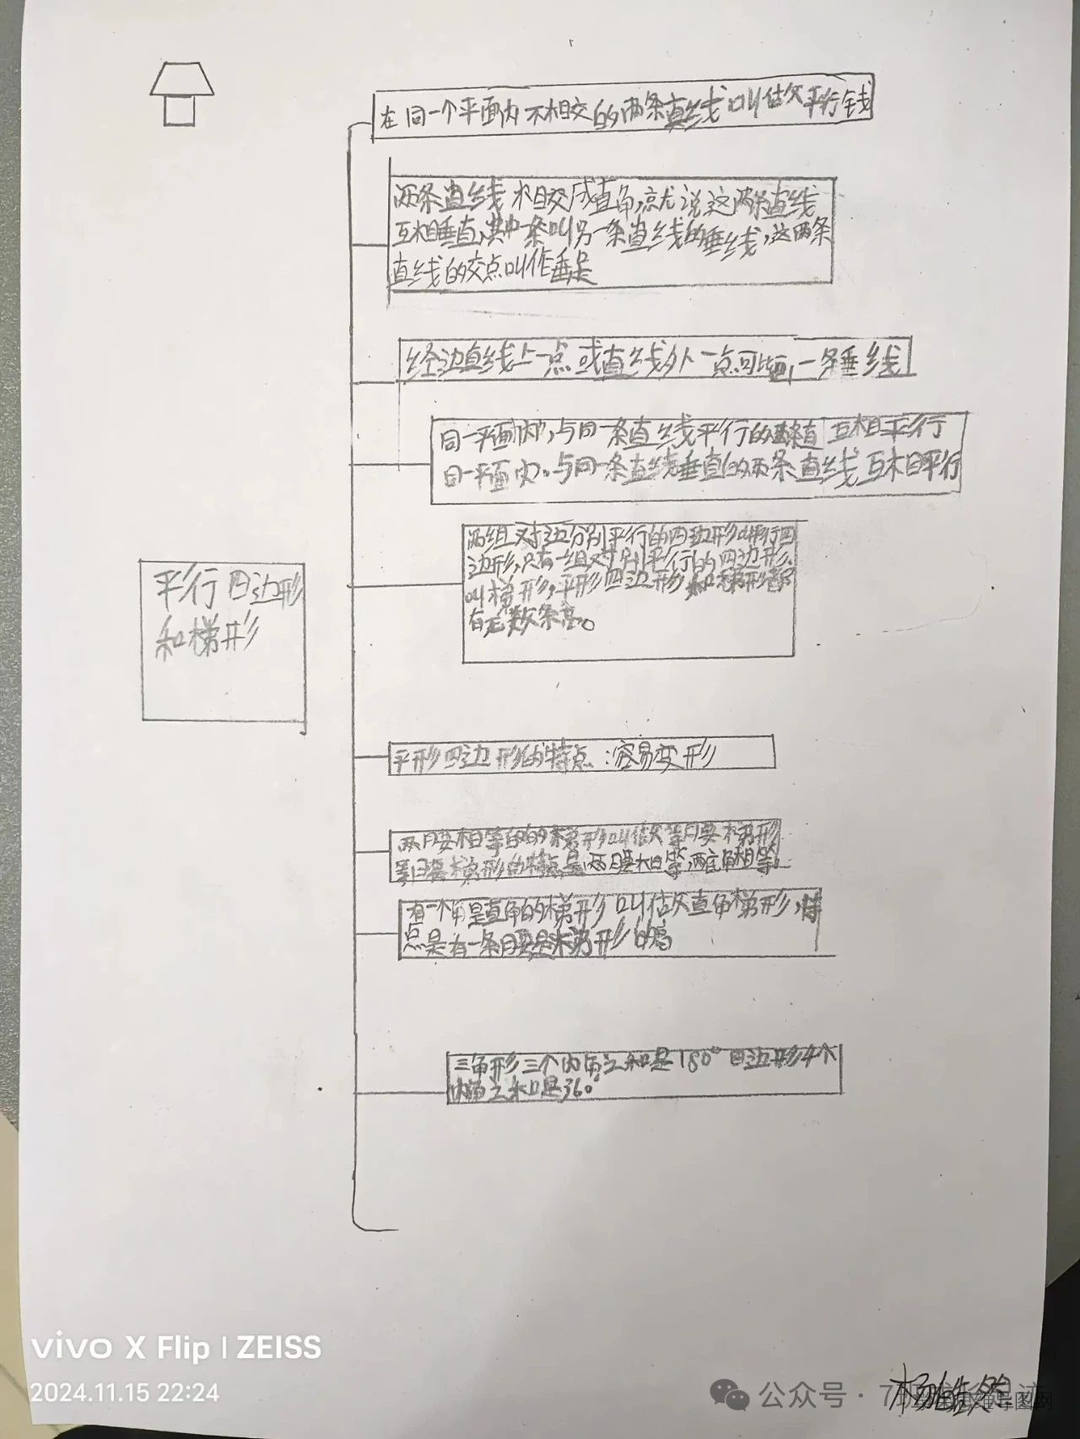 在同一个平面内不相交的两条直线叫做平行线
两条直线相交成直角,就说这两条直线
互相垂直,其中一条叫另一条直线的垂线,这两条
直线的交点叫作垂足
经过直线上一点或直线外一点可画一条垂线
同一平面内,与同一条直线平行的两条直 互相平行
同一平面内。与同一条直线垂直的两条直线互相平行
两组对边分别平行的四边形叫平行四
边形,只有一组对别平行的四边形
叫梯形,平形四边形和梯形都
有无数条高。
平行四边形
和梯形
平形四边形的特点:容易变形
两腰相等的的梯形叫做等腰梯形
等腰梯形的特点是两腰相等,两底角相等。
有一个角是直角的梯形叫做直角梯形,特
点是有一条腰是梯形的高
三角形三个内角之和是180°四边形4个
内角之和是360°
vivo X Flip | ZEISS
2024.11.15 22:24
公众号·7